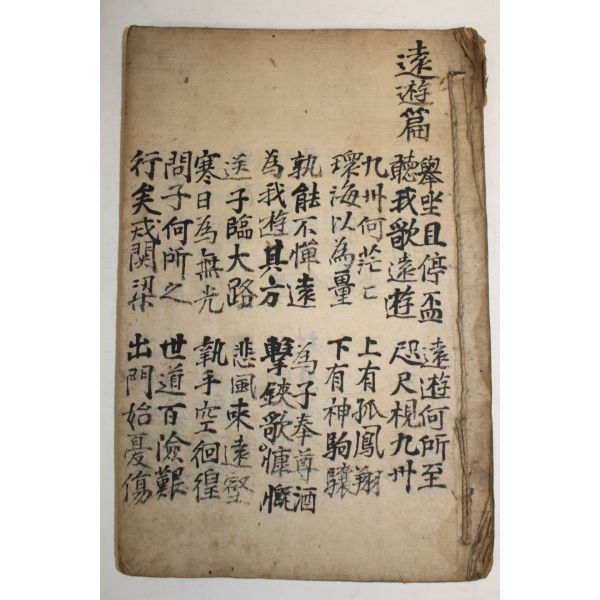 遠遊篇
舉坐且停盃
聽我歌遠遊
遠遊何所至
咫尺視九州
九州何茫〻
環海以為量
上有孤鳳翔
下有神駒驤
孰能不憚遠
為我遊其方
為子奉尊酒
擊鋏歌慷慨
送子臨大路
寒日為無光
悲風來遠壑
執手空徊徨
問子何所之
行矣戒関梁
世道百險艱
出門始憂傷